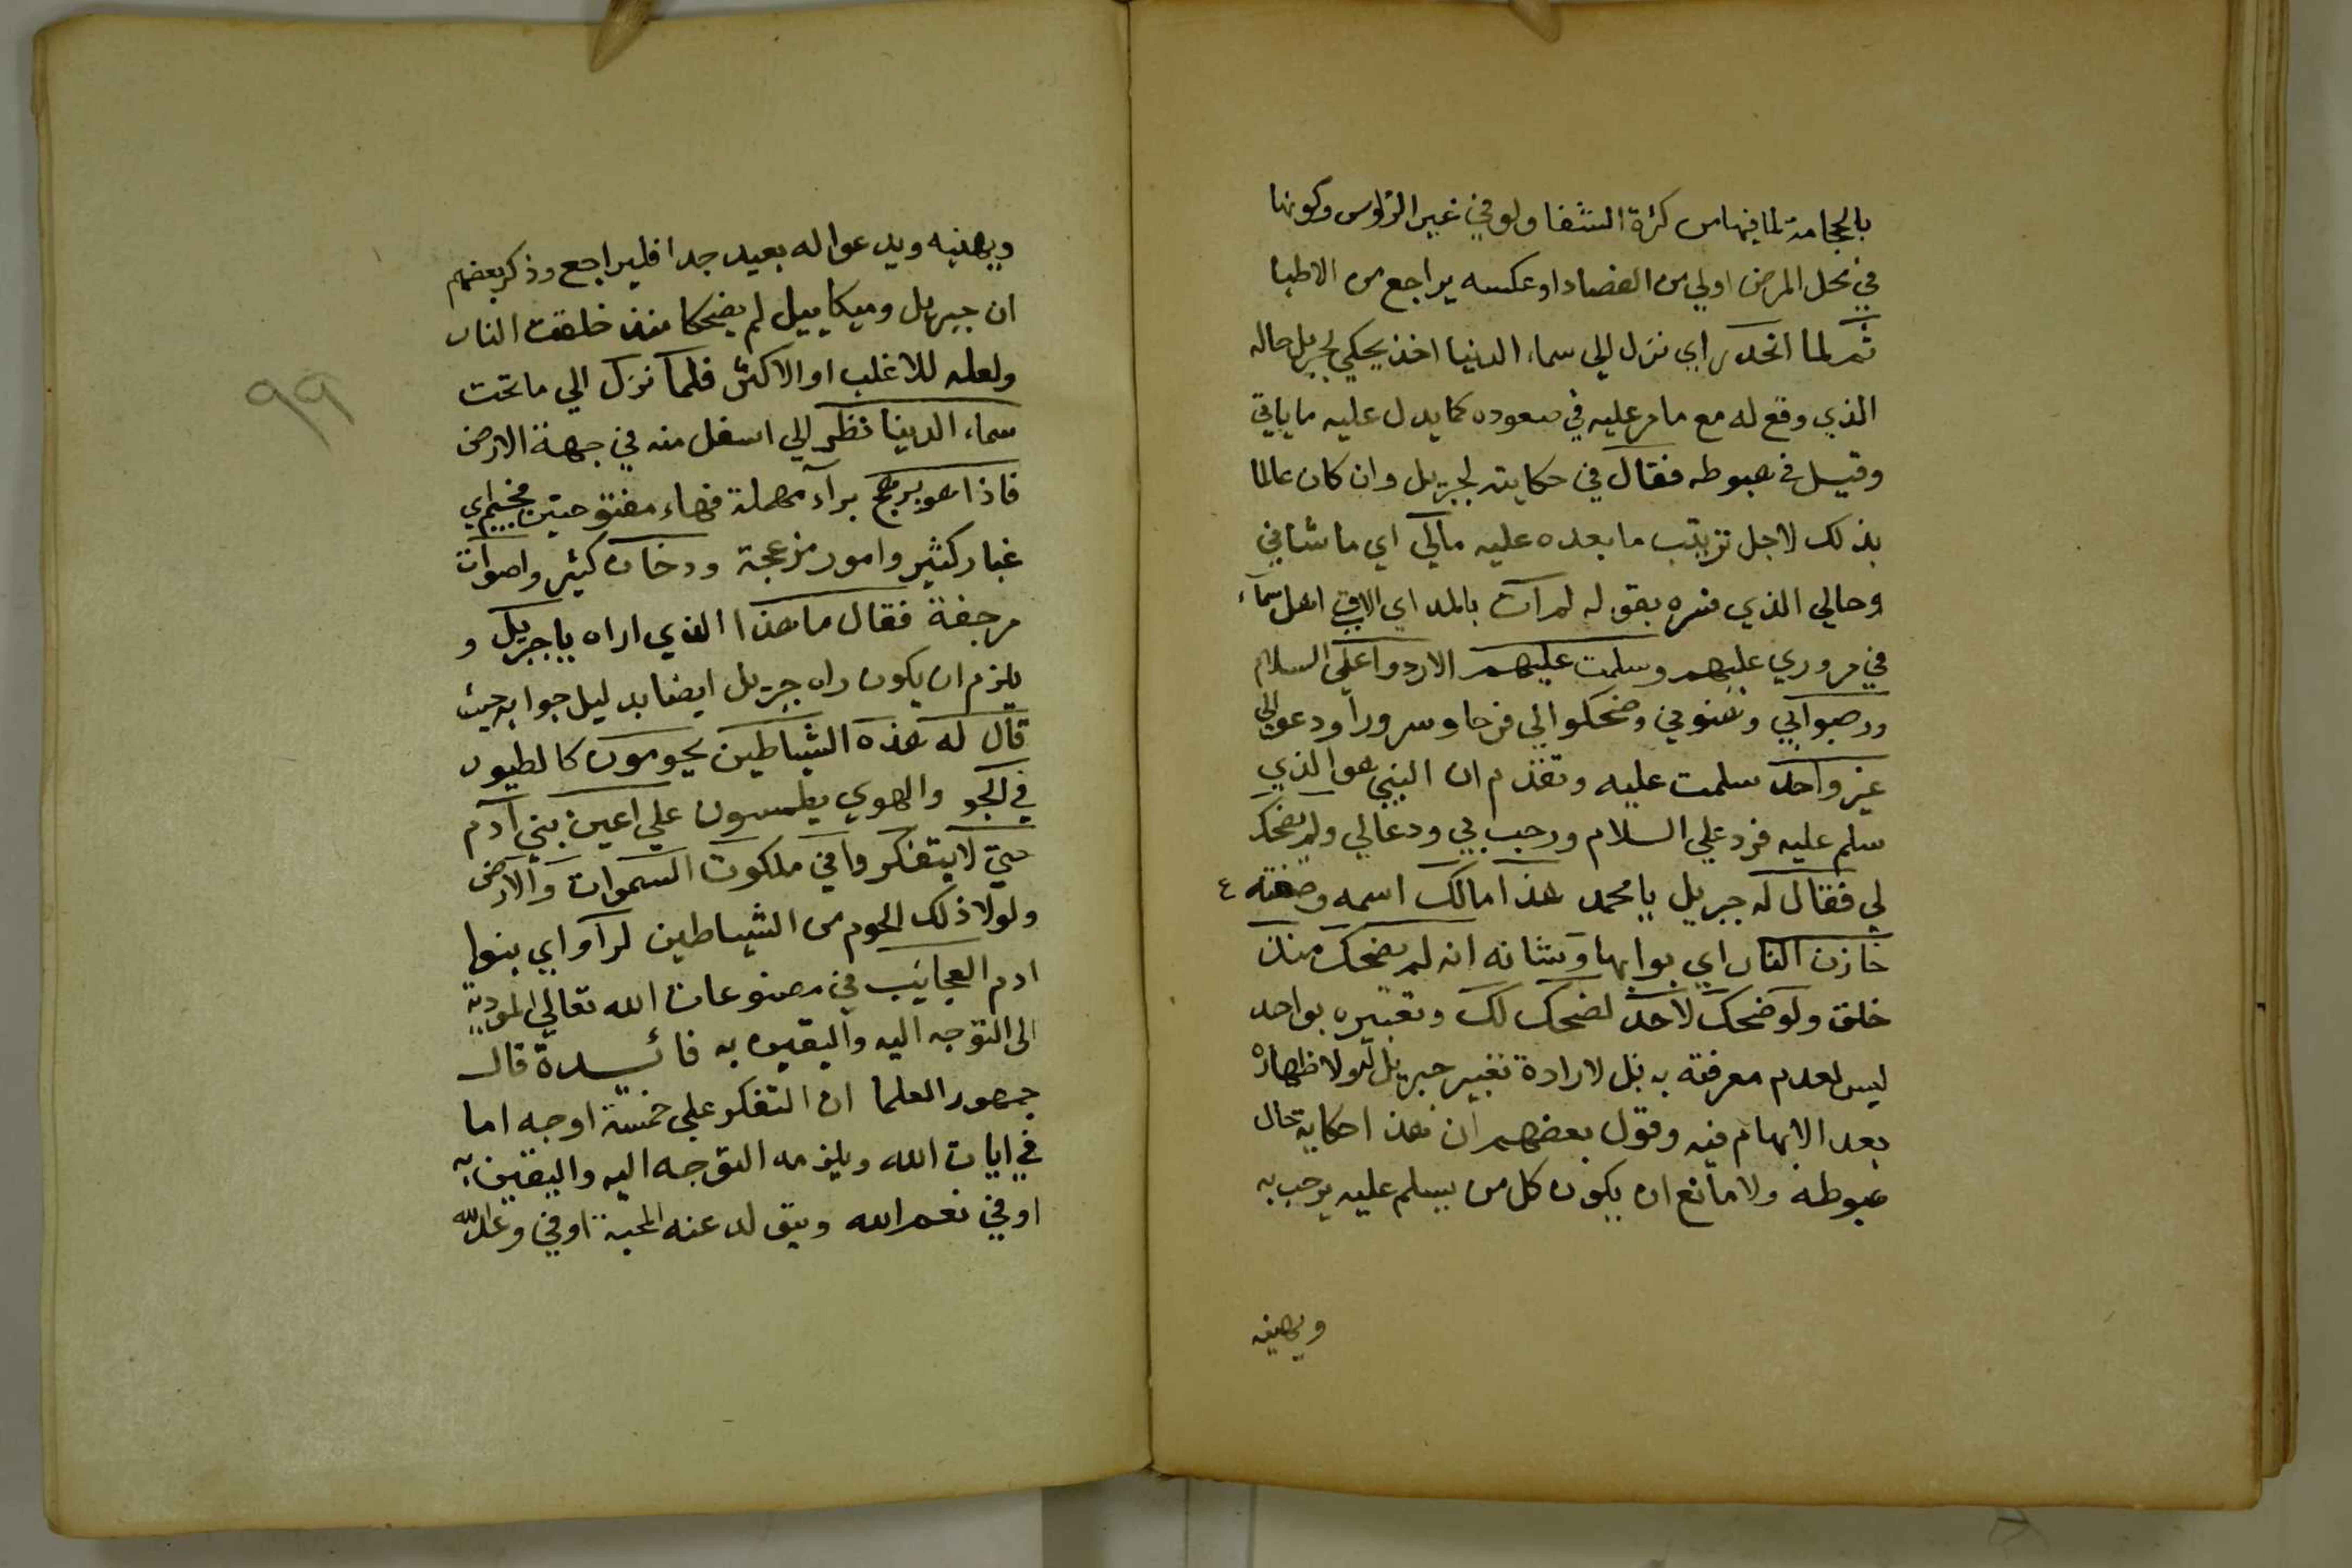 بالحجامة لما فيها من كثرة الشفا ولو في غير الرؤس وكونها
في محل المرض اولي من الفصاد او عكسه يراجع من الاطبا
ثم لما انحدر اي نزل الي سماء الدنيا اخذ يحكي لجبريل حاله
الذي وقع له مع ما مر عليه في صعوده كما يدل عليه ما ياتي
وقيل في هبوطه فقال في حكايته لجبريل وان كان عالما
بذلك لاجل ترتيب ما بعده عليه مالي اي ما شاني
وحالي الذي فسره بقوله لم آت بالمد اي الاقي اهل سماء
في مروري عليهم وسلمت عليهم الا ردوا علي السلام
ورحبوا بي وهنوني وضحكوا الي فرحا وسرورا ودعوا لي
غير واحد سلمت عليه وتقدم ان النبي هو الذي
سلم عليه فرد علي السلام ورحب بي ودعا لي ولم يضحك
لي فقال له جبريل يا محمد هذا مالك اسمه وصفته ٤
خازن النار اي بوابها وشانه انه لم يضحك منذ
خلق ولو ضحك لاحد لضحك لك وتعبيره بواحد
ليس لعدم معرفته به بل لارادة تعبير جبريل له ولاظهاره
بعد الابهام فيه وقول بعضهم ان هذا حكاية حال
هبوطه ولا مانع ان يكون كل من يسلم عليه يرحب به
ويهنيه
ويهنيه ويدعوا له بعيد جدا فليراجع وذكر بعضهم
ان جبريل وميكاييل لم يضحكا منذ خلقت النار
ولعله للاغلب او الاكثر فلما نزل الي ما تحت
سماء الدينا نظر الي اسفل منه في جهة الارض
فاذا هو برهج براء مهملة فهاء مفتوحتين فجيم اي
غبار كثير وامور مزعجة ودخان كثير واصوات
مرجفة فقال ما هذا الذي اراه يا جبريل و
يلزم ان يكون راه جبريل ايضا بدليل جوابه حيث
قال له هذه الشياطين يحومون كالطيور
في الجو والهوي يطمسون علي اعين بني آدم
حتي لا يتفكروا في ملكوت السموات والارض
ولولا ذلك الحوم من الشياطين لرآو اي بنوا
ادم العجايب في مصنوعات الله تعالي المودية
الى التوجه اليه واليقين به فائدة قال
جمهور العلما ان التفكر علي خمسة اوجه اما
في ايات الله ويلزمه التوجه اليه واليقين به
او في نعم الله ويتولد عنه المحبة او في وعد الله
٩٩